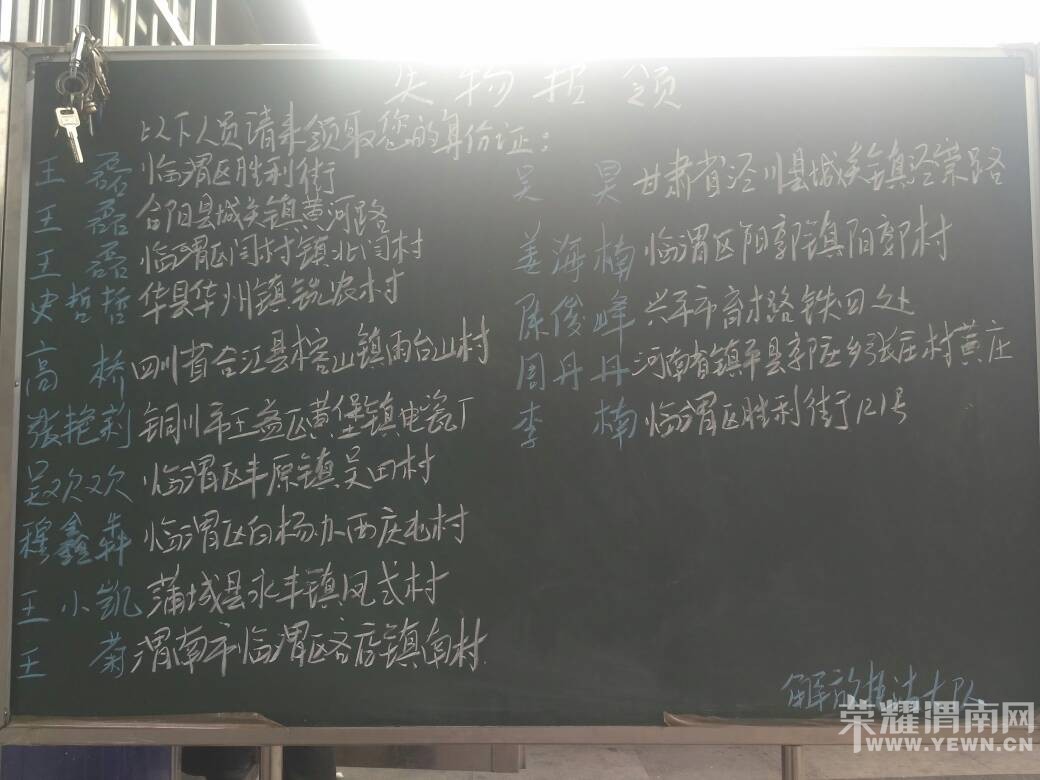 失物招领
以下人员请来领取您的身份证：
王磊 临渭区胜利街
王磊 合阳县城关镇黄河路
王磊 临渭区闫村镇北闫村
史哲哲 华县华州镇铁农村
高桥 四川省合江县榕山镇雨台山村
张艳莉 铜川市王益区黄堡镇电瓷厂
吴欢欢 临渭区丰原镇吴田村
穆鑫犇 临渭区白杨办西庆屯村
王小凯 蒲城县永丰镇风式村
王菊 渭南市临渭区南村
吴昊 甘肃省泾川县城关镇路
姜海楠 临渭区阳郭镇阳郭村
俊峰 兴平市育才路铁四处
周丹丹 河南省镇平县郭庄乡张庄村黄庄
李楠 临渭区胜利街121号
解放大队
荣耀渭南网
WWW.YEWN.CN